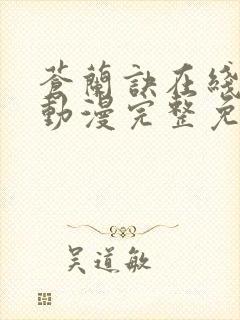 蒼蘭訣在綫
動漫完整免
吴道敏